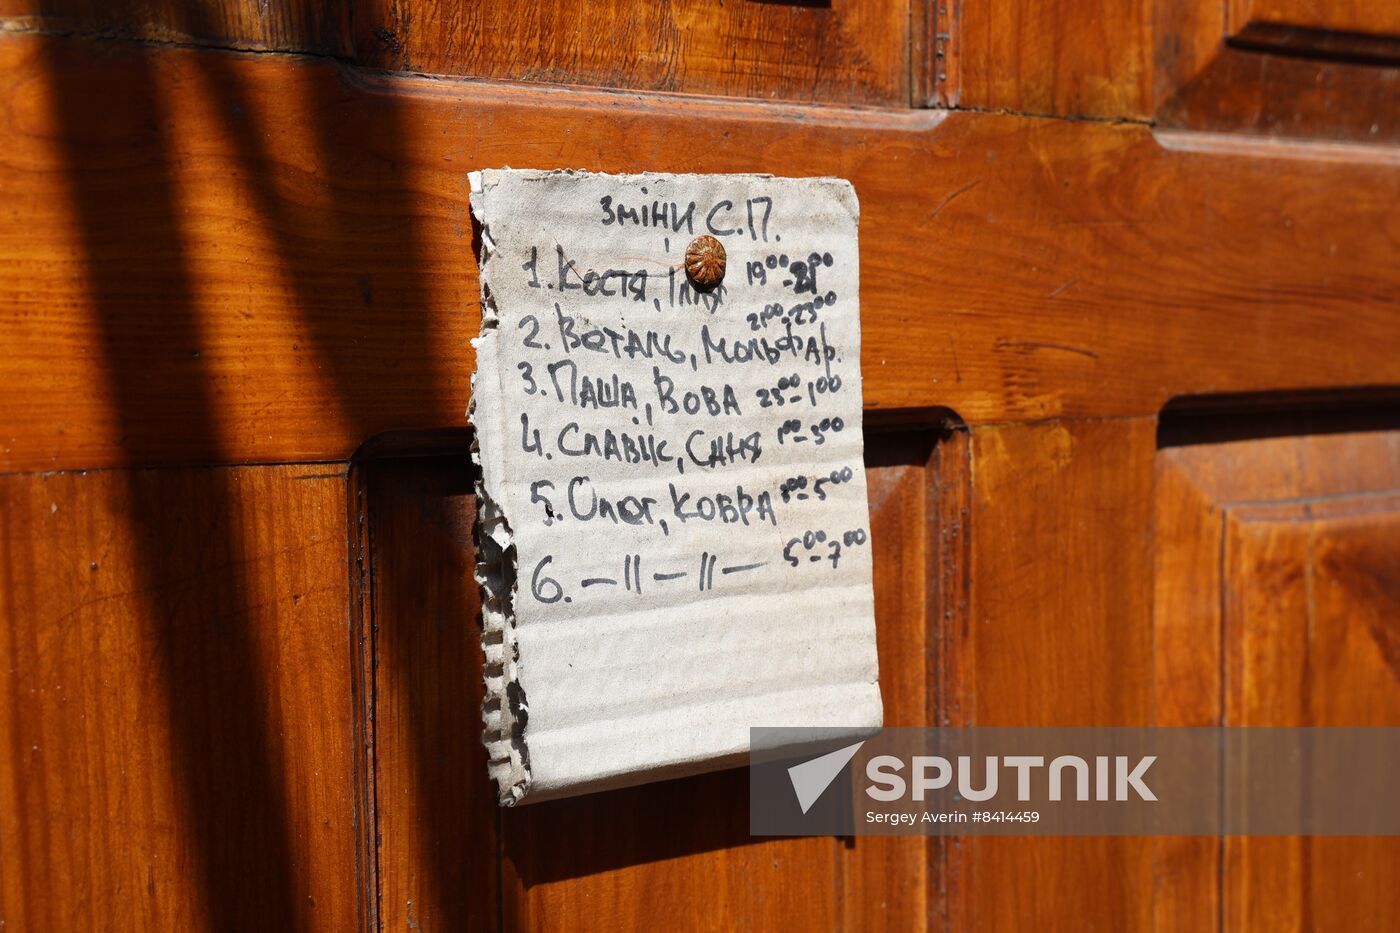 Зміни С.П.
1. Костя, Ілля 19⁰⁰-21⁰⁰
2. Веталь, Мольфар. 21⁰⁰-23⁰⁰
3. Паша, Вова 23⁰⁰-1⁰⁰
4. Славік, Саня 1⁰⁰-3⁰⁰
5. Олег, Ковра 3⁰⁰-5⁰⁰
6. —||—||— 5⁰⁰-7⁰⁰
SPUTNIK
Sergey Averin #8414459